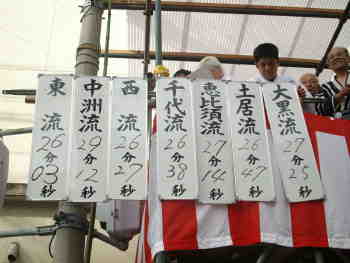 大黒流
27分
25秒
土居流
26分
47秒
恵比須流
27分
14秒
千代流
26分
38秒
西流
26分
27秒
中洲流
29分
12秒
東流
26分
03秒